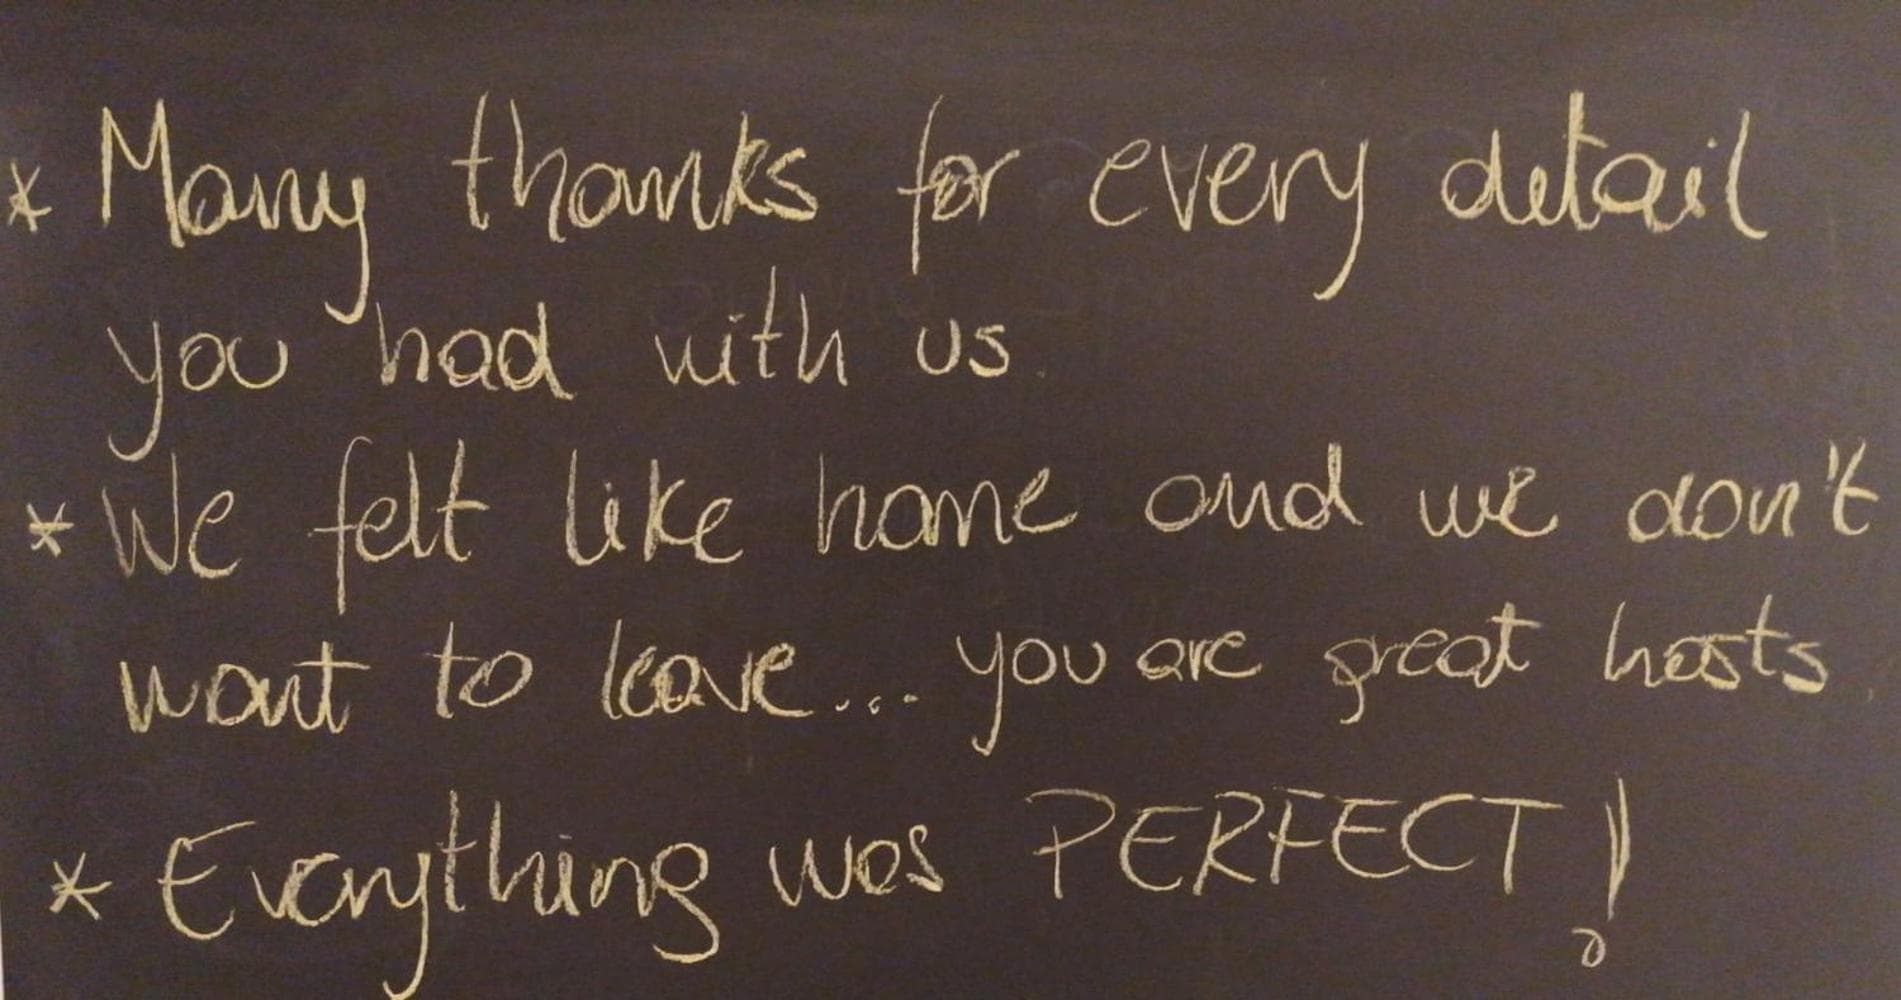 * Many thanks for every detail
you had with us.
* We felt like home and we don't
want to leave... you are great hosts.
* Everything was PERFECT!